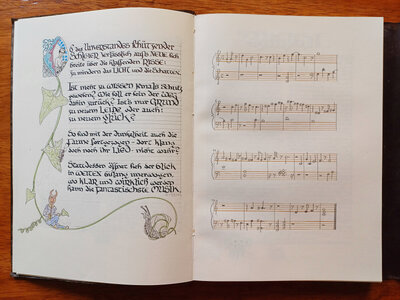 O, des Unverstandes schützender
Schleier verlässlich aufs Neue sich
breite über die klaffenden Risse:
zu mindern das Licht und die Schatten.
Ist mehr zu wissen jemals Schutz
gewesen? Wie soll er sein der Weg
dahin zurück? Ist's nur Grund
zu neuem Leide, oder auch:
zu neuem Glück?
So sind mit der Dunkelheit auch die
Faune fortgezogen - dort klang
doch noch ihr Lied - nicht wahr?
Stattdessen öffnet sich der Blick
in Welten bislang unerwogen,
wo klar und wirklich werden
kann die fantastischste Musik.